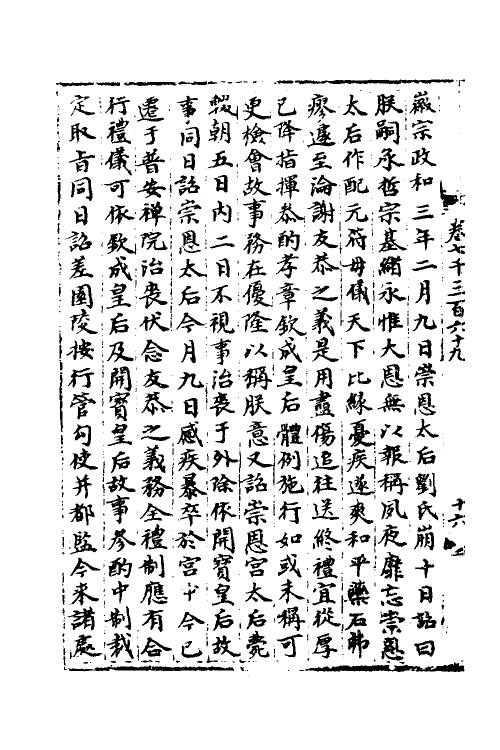 徽宗政和三年二月九日崇恩太后劉氏崩十日詔曰
朕嗣承哲宗基緒永惟大恩無以報稱夙夜靡忘崇恩
太后作配元符母儀天下比緣憂疾遂爽和平藥石弗
瘳遽至淪謝友恭之義是用盡傷追往送終禮宜從厚
已降指揮恭酌孝章欽成皇后體例施行如或未稱可
更檢會故事務在優隆以稱朕意又詔崇恩宮太后薨
輟朝五日內二日不視事治喪于外除依開寶皇后故
事同日詔崇恩太后今月九日感疾暴卒於宮十今已
遷于普安禪院治喪伏念友恭之義務全禮制應有合
行禮儀可依欽成皇后及開寶皇后故事參酌中制裁
定取旨同日詔差園陵按行管勾使并都監今來諸處
卷七千三百六十九
十六